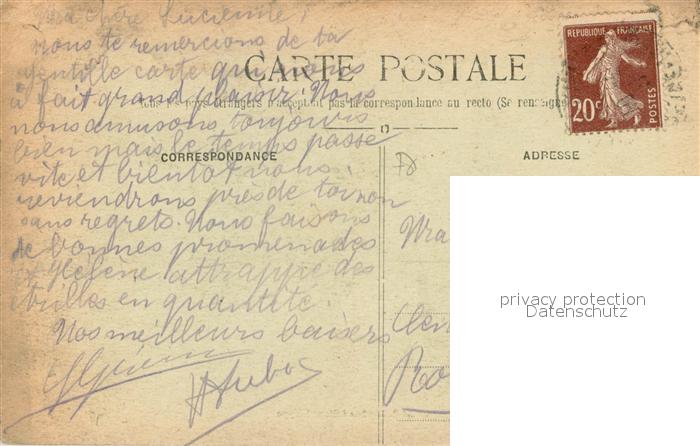 Ma chère Lucienne,
nous te remercions de ta
gentille carte qui nous
CARTE POSTALE
à fait grand plaisir. Nous
Tous les pays étrangers n'acceptent pas la correspondance au recto (Se renseigner
nous amusons toujours
bien mais le temps passe
CORRESPONDANCE
vite et bientôt nous
reviendrons près de toi non
sans regrets. Nous faisons
de bonnes promenades
Hélène attrappe des
étrilles en quantité.
Nos meilleurs baisers
RÉPUBLIQUE FRANÇAISE
20c
POSTES
ADRESSE
privacy protection
Datenschutz